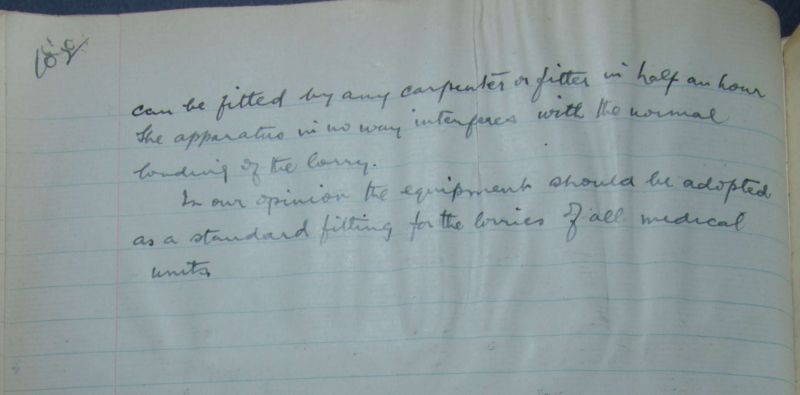 can be fitted by any carpenter or fitter in half an hour
The apparatus in no way interferes with the normal
loading of the lorry.
In our opinion the equipment should be adopted
as a standard fitting for the lorries of all medical
units